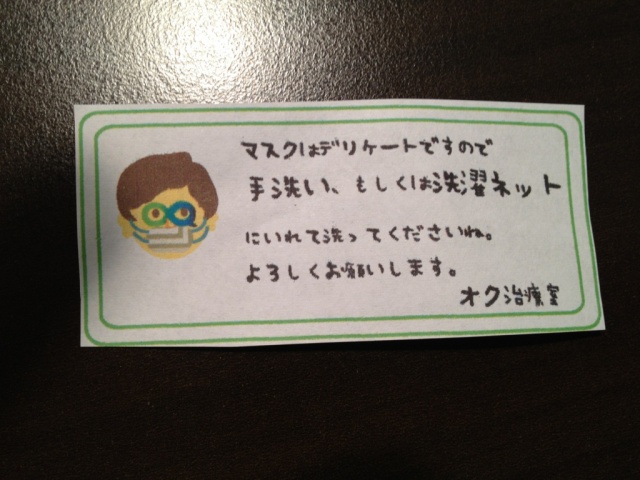 マスクはデリケートですので
手洗い、もしくは洗濯ネット
にいれて洗ってくださいね。
よろしくお願いします。
オク治療室